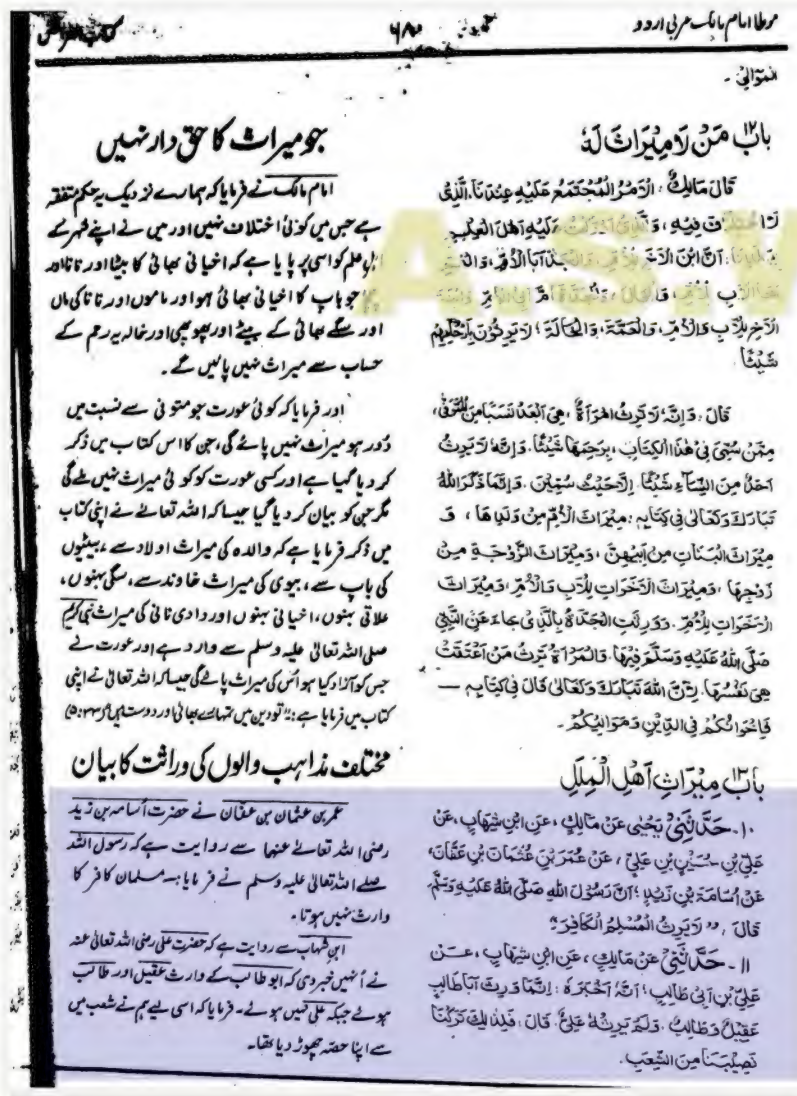 موطا امام مالک عربی اردو
۶۸۰
کتاب الفرائض
الْمَوَالِيْ ۔
بَابُ ۱۲ مَنْ لَا مِيْرَاثَ لَهُ
قَالَ مَالِكٌ : الْاَمْرُ الْمُجْتَمَعُ عَلَيْهِ عِنْدَنَا، الَّذِیْ
لَا اخْتِلَافَ فِيْهِ ، وَالَّذِیْ اَدْرَكْتُ عَلَيْهِ اَهْلَ الْعِلْمِ
بِبَلَدِنَا : اَنَّ ابْنَ الْاَخِ لِلْاُمِّ ، وَالْجَدَّ اَبَا الْاُمِّ ، وَالْعَمَّ
اَخَا الْاَبِ لِلْاُمِّ ، وَالْخَالَ ، وَالْجَدَّةَ اُمَّ اَبِی الْاُمِّ ، وَابْنَةَ
الْاَخِ لِلْاَبِ وَالْاُمِّ ، وَالْعَمَّةَ ، وَالْخَالَةَ ؛ لَا يَرِثُوْنَ بِاَرْحَامِهِمْ
شَيْئًا .
قَالَ : وَاِنَّهُ لَا تَرِثُ امْرَاَةٌ ، هِیَ اَبْعَدُ نَسَبًا مِنَ الْمُتَوَفّٰى ،
مِمَّنْ سُمِّیَ فِیْ هٰذَا الْكِتَابِ ، بِرَحِمِهَا شَيْئًا . وَاِنَّهُ لَا يَرِثُ
اَحَدٌ مِنَ النِّسَاءِ شَيْئًا . اِلَّا حَيْثُ سُمِّيْنَ . وَاِنَّمَا ذَكَرَ اللهُ
تَبَارَكَ وَتَعَالٰى فِیْ كِتَابِهِ : مِيْرَاثَ الْاُمِّ مِنْ وَلَدِهَا ، وَ
مِيْرَاثَ الْبَنَاتِ مِنْ اَبِيْهِنَّ ، وَمِيْرَاثَ الزَّوْجَةِ مِنْ
زَوْجِهَا ، وَمِيْرَاثَ الْاَخَوَاتِ لِلْاَبِ وَالْاُمِّ ، وَمِيْرَاثَ
الْاَخَوَاتِ لِلْاُمِّ . وَوَرِثَتِ الْجَدَّةُ بِالَّذِیْ جَاءَ عَنِ النَّبِیِّ
صَلَّى اللهُ عَلَيْهِ وَسَلَّمَ فِيْهَا . وَالْمَرْاَةُ تَرِثُ مَنْ اَعْتَقَتْ
هِیَ نَفْسُهَا . لِاَنَّ اللهَ تَبَارَكَ وَتَعَالٰى قَالَ فِیْ كِتَابِهِ —
فَاِخْوَانُكُمْ فِی الدِّيْنِ وَمَوَالِيْكُمْ ۔
بَابُ ۱۳ مِيْرَاثِ اَهْلِ الْمِلَلِ
۱۰ ۔ حَدَّثَنِیْ يَحْيٰى عَنْ مَالِكٍ ، عَنِ ابْنِ شِهَابٍ ، عَنْ
عَلِیِّ بْنِ حُسَيْنِ بْنِ عَلِیٍّ ، عَنْ عُمَرَ بْنِ عُثْمَانَ بْنِ عَفَّانَ ،
عَنْ اُسَامَةَ بْنِ زَيْدٍ ؛ اَنَّ رَسُوْلَ اللهِ صَلَّى اللهُ عَلَيْهِ وَسَلَّمَ
قَالَ : " لَا يَرِثُ الْمُسْلِمُ الْكَافِرَ "
۱۱ ۔ حَدَّثَنِیْ عَنْ مَالِكٍ ، عَنِ ابْنِ شِهَابٍ ، عَنْ
عَلِیِّ بْنِ اَبِیْ طَالِبٍ ؛ اَنَّهُ اَخْبَرَهُ : اِنَّمَا وَرِثَ اَبَا طَالِبٍ
عَقِيْلٌ وَطَالِبٌ . وَلَمْ يَرِثْهُ عَلِیٌّ . قَالَ : فَلِذٰلِكَ تَرَكْنَا
نَصِيْبَنَا مِنَ الشِّعْبِ .
جو میراث کا حق دار نہیں
امام مالک نے فرمایا کہ ہمارے نزدیک یہ حکم متفقہ
ہے جس میں کوئی اختلاف نہیں اور میں نے اپنے شہر کے
اہلِ علم کو اسی پر پایا ہے کہ اخیافی بھائی کا بیٹا اور نانا اور
چچا جو باپ کا اخیافی بھائی ہو اور ماموں اور نانا کی ماں
اور سگے بھائی کے بیٹے اور پھوپھی اور خالہ یہ رحم کے
حساب سے میراث نہیں پائیں گے ۔
اور فرمایا کہ کوئی عورت جو متوفی سے نسبت میں
دُور ہو میراث نہیں پائے گی، جن کا اس کتاب میں ذکر
کر دیا گیا ہے اور کسی عورت کو کوئی میراث نہیں ملے گی
مگر جن کو بیان کر دیا گیا جیسا کہ اللہ تعالےٰ نے اپنی کتاب
میں ذکر فرمایا ہے کہ والدہ کی میراث اولاد سے ، بیٹیوں
کی باپ سے ، بیوی کی میراث خاوند سے، سگی بہنوں ،
علاتی بہنوں، اخیافی بہنوں اور دادی نانی کی میراث نبی کریم
صلی اللہ تعالیٰ علیہ وسلم سے وارد ہے اور عورت نے
جس کو آزاد کیا ہو اُس کی میراث پائے گی جیسا کہ اللہ تعالیٰ نے اپنی
کتاب میں فرمایا ہے : تو دین میں تمہارے بھائی اور دوست ہیں
مختلف مذاہب والوں کی وراثت کا بیان
عمر بن عثمان بن عفان نے حضرت اُسامہ بن زید
رضی اللہ تعالےٰ عنہما سے روایت ہے کہ رسول اللہ
صلے اللہ تعالیٰ علیہ وسلم نے فرمایا ہے مسلمان کافر کا
وارث نہیں ہوتا ۔
ابن شہاب سے روایت ہے کہ حضرت علی رضی اللہ تعالیٰ عنہ
نے اُنہیں خبر دی کہ ابوطالب کے وارث عقیل اور طالب
ہوئے جبکہ علی نہیں ہوئے ۔ فرمایا کہ اسی لیے ہم نے شعب میں
سے اپنا حصہ چھوڑ دیا تھا ۔